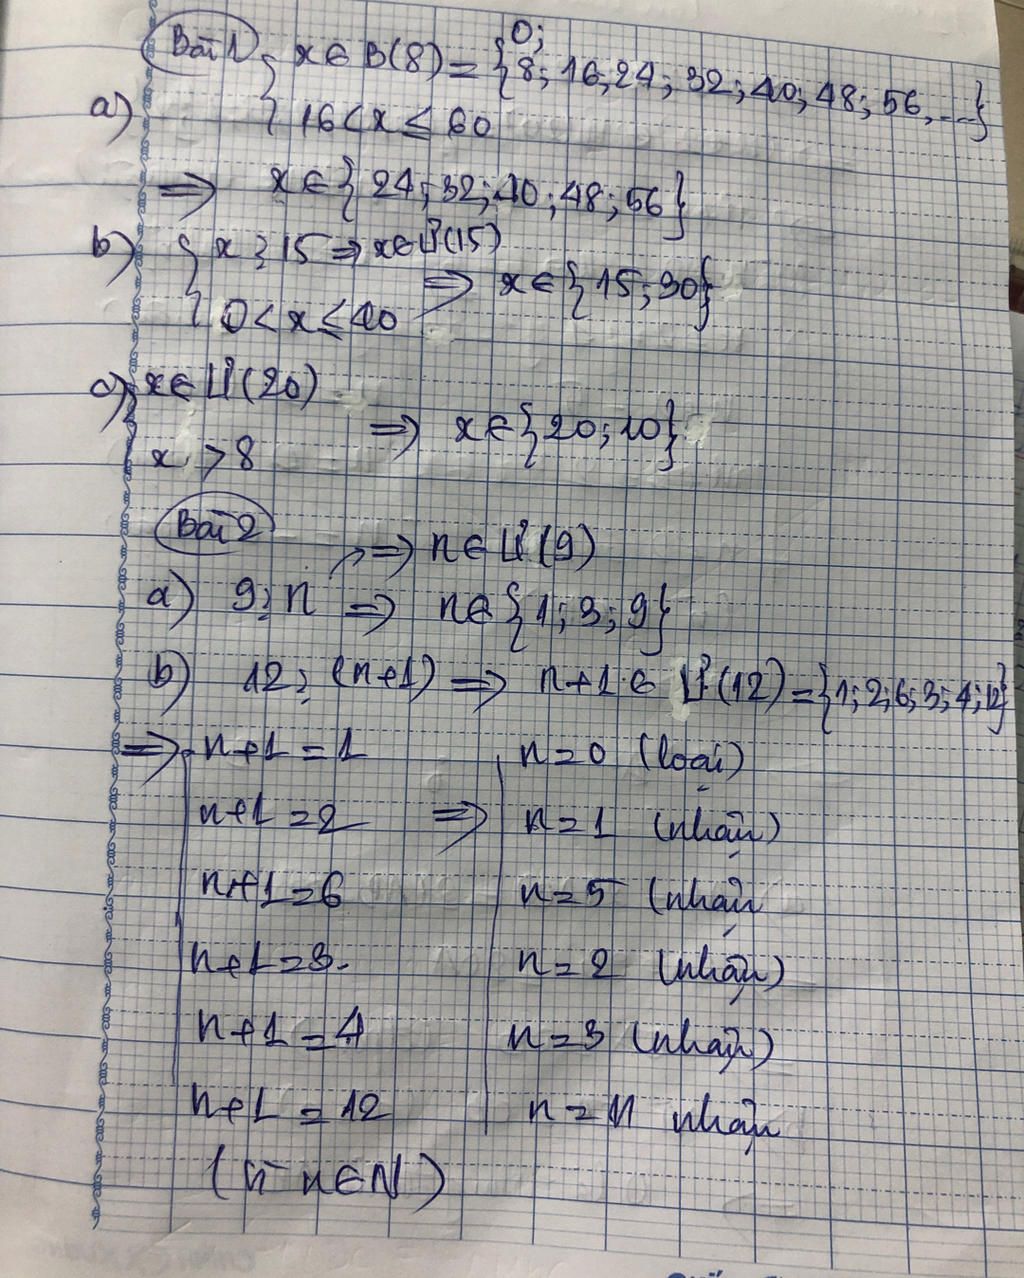 Bài 1
0;
x ∈ B(8) = {8; 16; 24; 32; 40; 48; 56, ...}
a)
16 < x ≤ 60
⇒ x ∈ {24; 32; 40; 48; 56}
b) { x ⋮ 15 ⇒ x ∈ Ư(15)
⇒ x ∈ {15; 30}
0 < x ≤ 40
c) x ∈ Ư(20)
⇒ x ∈ {20; 10}
x > 8
Bài 2
⇒ n ∈ Ư(9)
a) 9 ⋮ n ⇒ n ∈ {1; 3; 9}
b) 12 ⋮ (n+1) ⇒ n+1 ∈ Ư(12) = {1; 2; 6; 3; 4; 12}
⇒ n+1 = 1 n = 0 (loại)
n+1 = 2 ⇒ n = 1 (nhận)
n+1 = 6 n = 5 (nhận
n+1 = 3 n = 2 (nhận)
n+1 = 4 n = 3 (nhận)
n+1 = 12 n = 11 nhận
(vì n ∈ N)